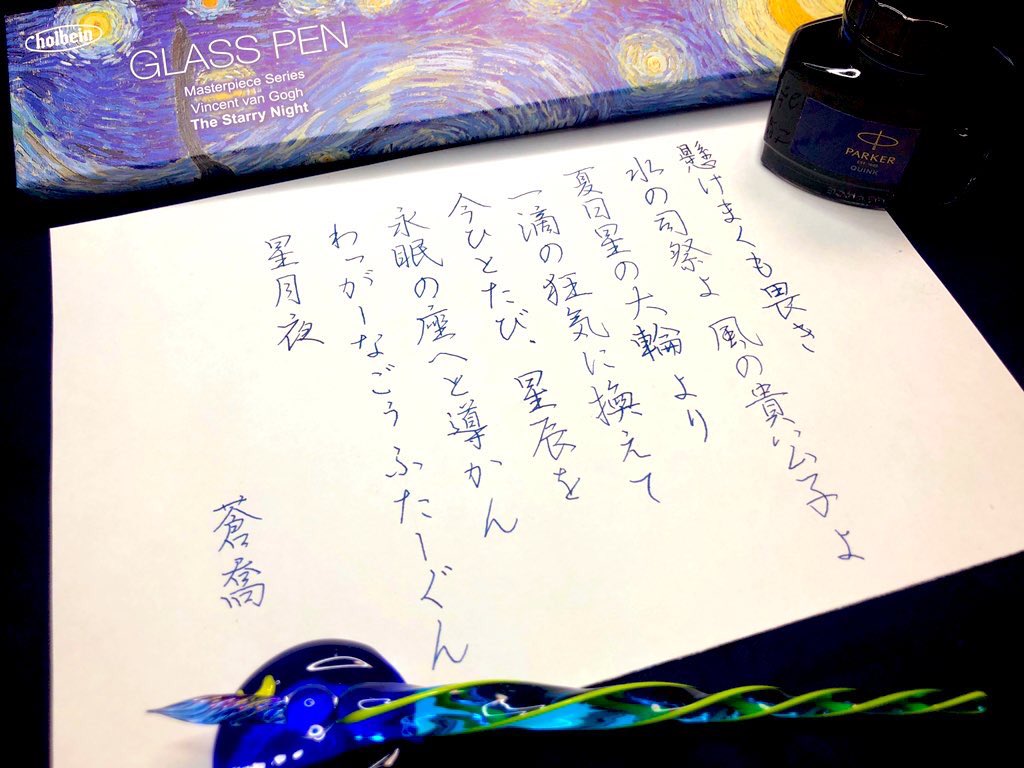 holbein
GLASS PEN
Masterpiece Series
Vincent van Gogh
The Starry Night
PARKER
QUINK
懸けまくも畏き
水の司祭よ 風の貴公子よ
夏日星の大輪より
一滴の狂気に換えて
今ひとたび、星辰を
永眠の座へと導かん
わっがーなごうふたーぐん
星月夜
蒼喬